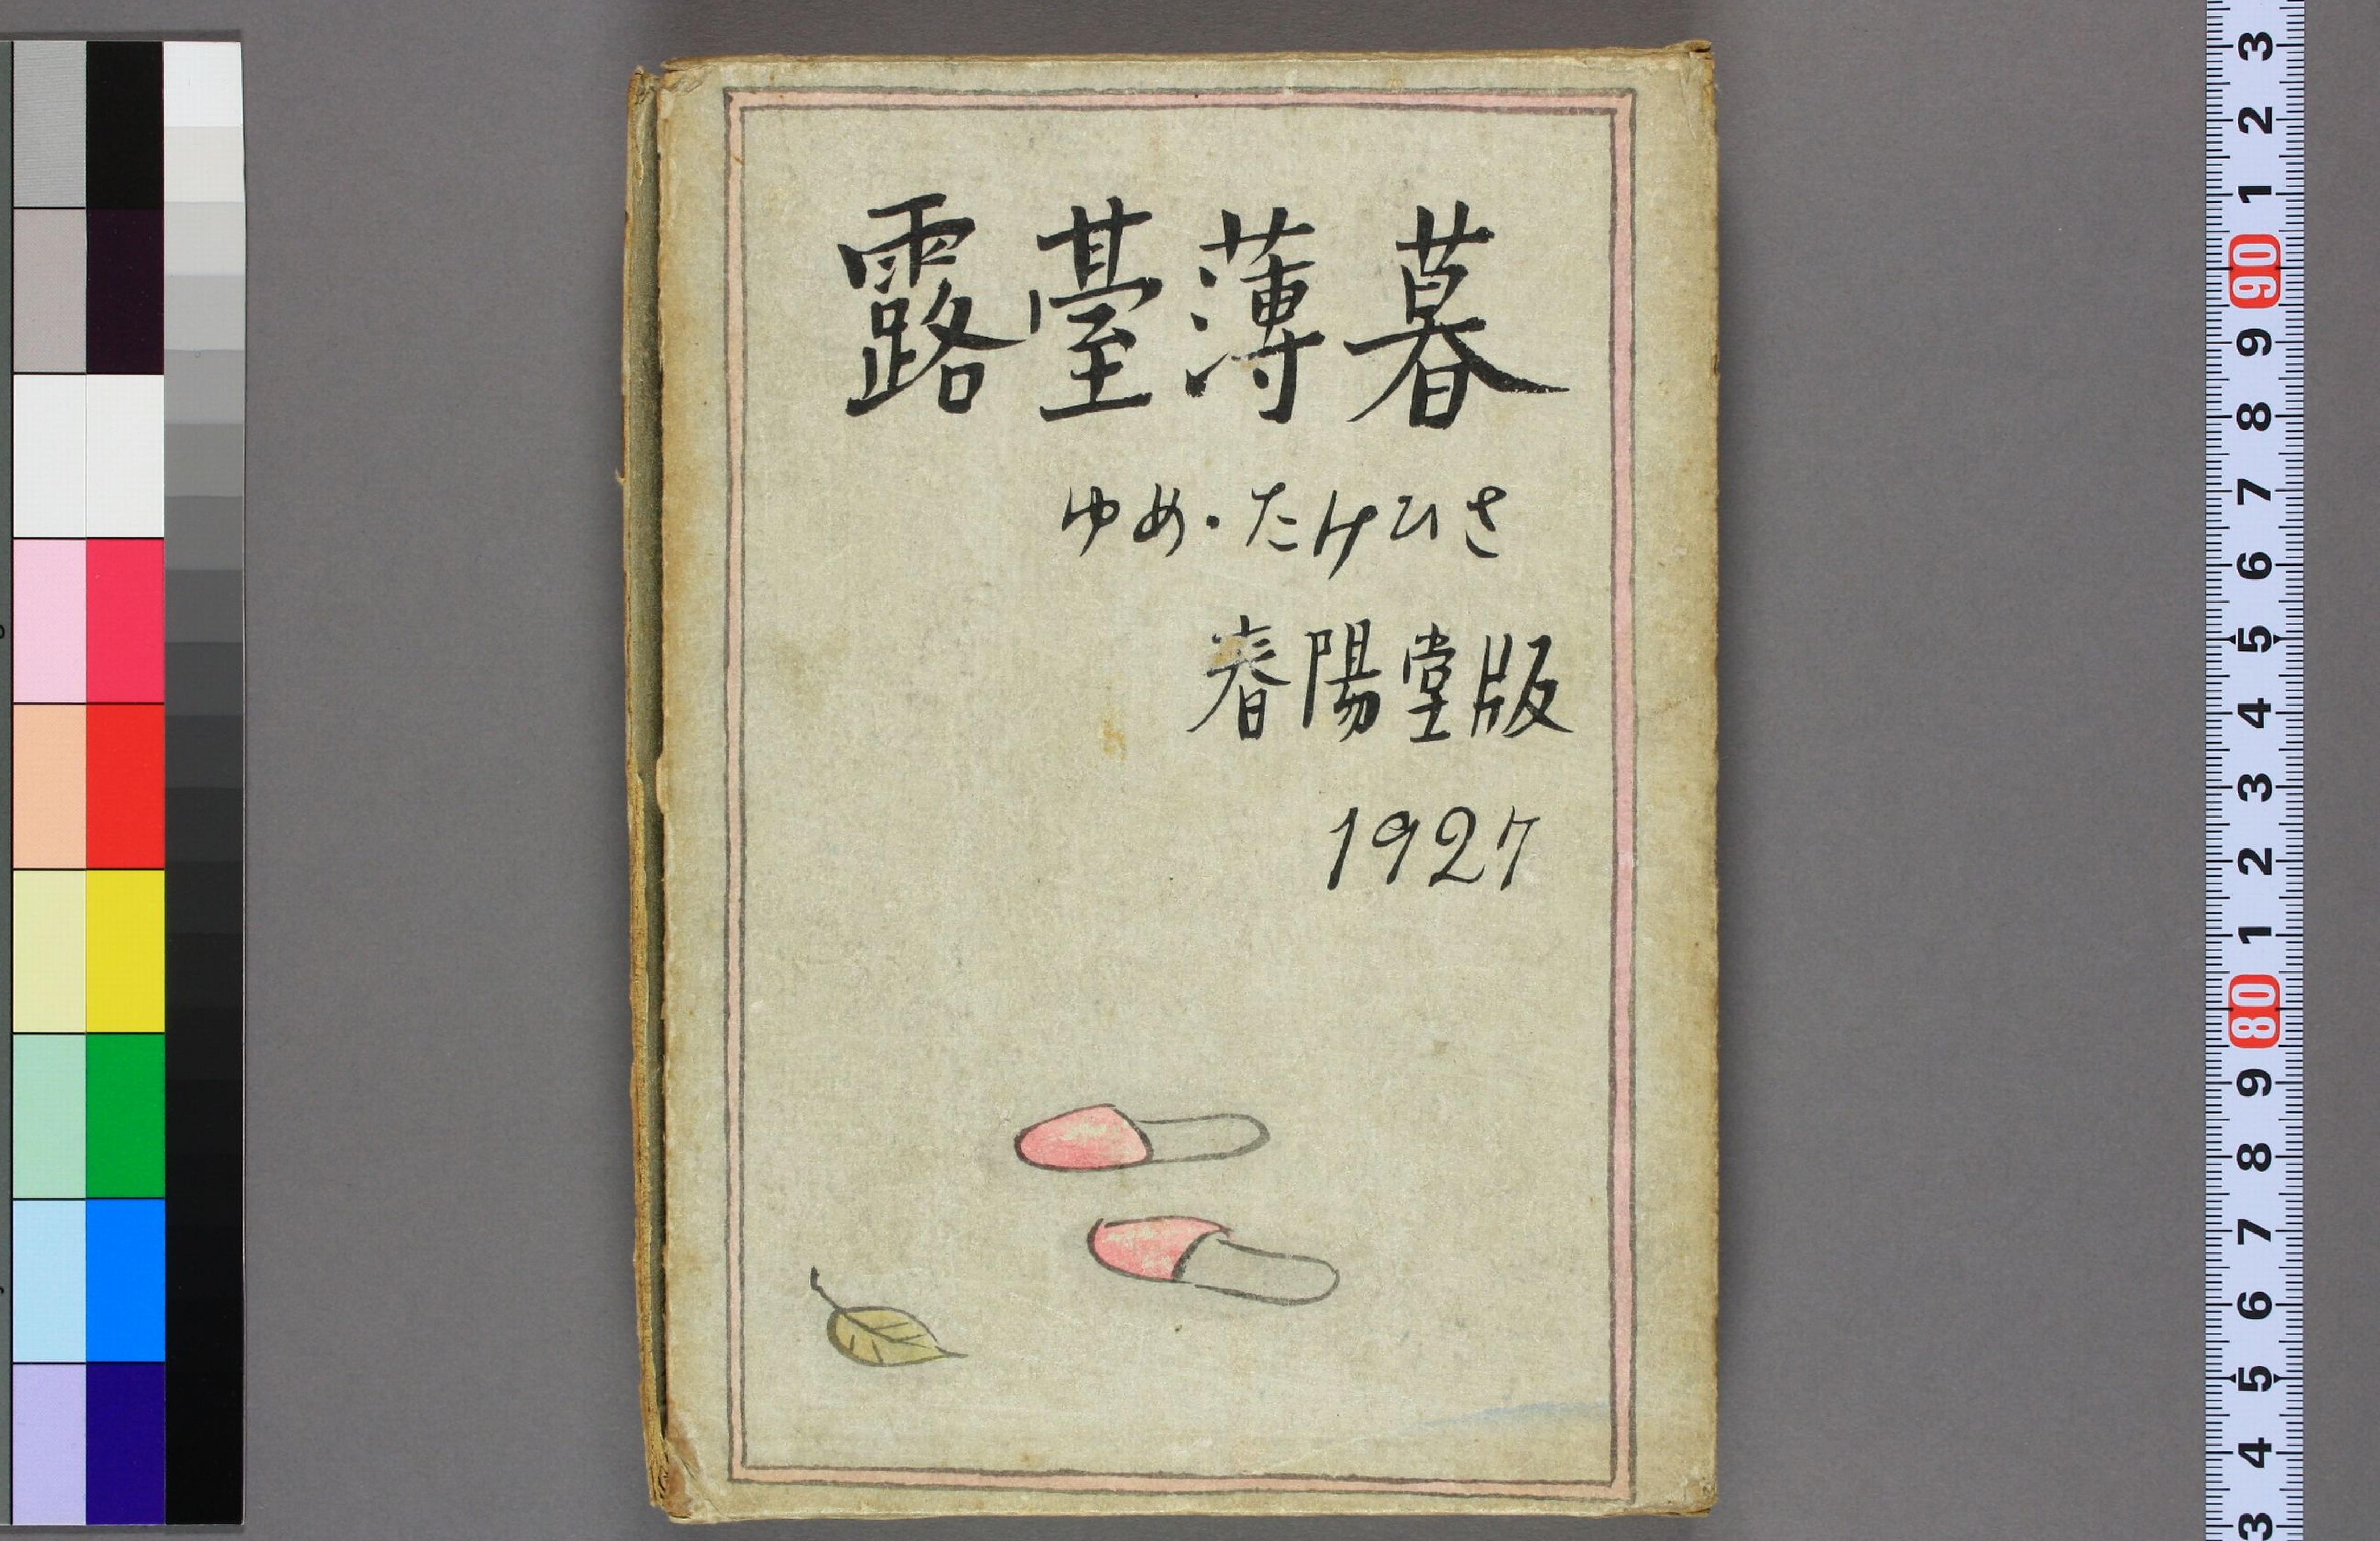 露臺薄暮
ゆめ・たけひさ
春陽堂版
1927
3
2
1
90
9
8
7
6
5
4
3
2
1
80
9
8
7
6
5
4
3